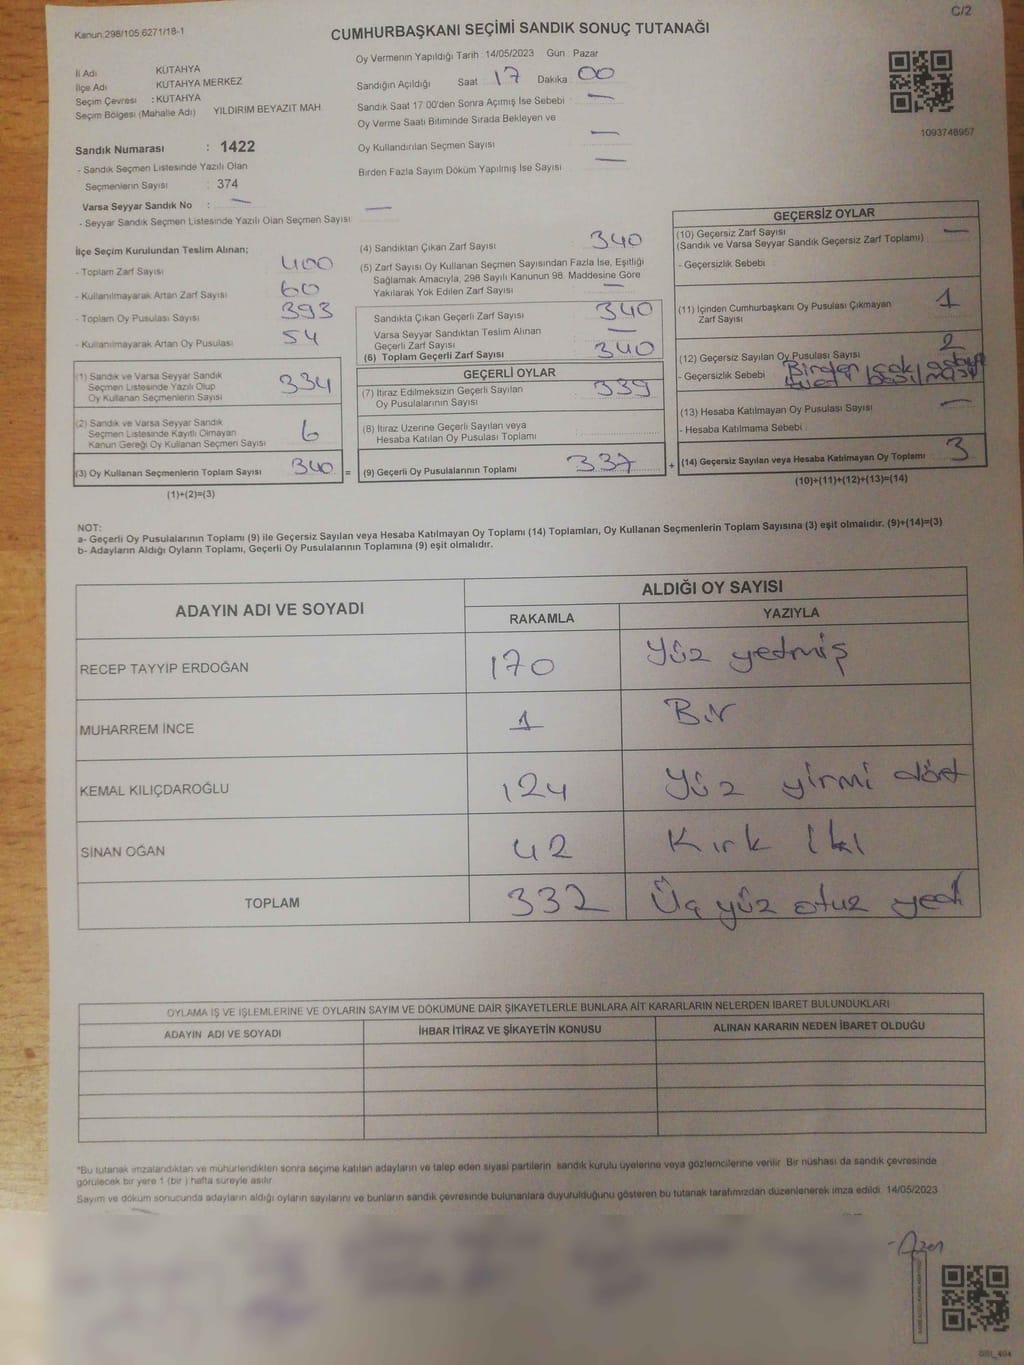 C/2
Kanun.298/105,6271/18-1
CUMHURBAŞKANI SEÇİMİ SANDIK SONUÇ TUTANAĞI
İl Adı KÜTAHYA
İlçe Adı KÜTAHYA MERKEZ
Seçim Çevresi : KÜTAHYA
Seçim Bölgesi (Mahalle Adı) YILDIRIM BEYAZIT MAH.
Sandık Numarası : 1422
- Sandık Seçmen Listesinde Yazılı Olan
Seçmenlerin Sayısı : 374
Varsa Seyyar Sandık No : —
- Seyyar Sandık Seçmen Listesinde Yazılı Olan Seçmen Sayısı —
Oy Vermenin Yapıldığı Tarih : 14/05/2023 Gün : Pazar
Sandığın Açıldığı Saat : 17 Dakika : 00
Sandık Saat 17:00'den Sonra Açımış İse Sebebi : —
Oy Verme Saati Bitiminde Sırada Bekleyen ve
Oy Kullandırılan Seçmen Sayısı —
Birden Fazla Sayım Döküm Yapılmış İse Sayısı —
1093748957
İlçe Seçim Kurulundan Teslim Alınan;
- Toplam Zarf Sayısı 400
- Kullanılmayarak Artan Zarf Sayısı 60
- Toplam Oy Pusulası Sayısı 393
- Kullanılmayarak Artan Oy Pusulası 54
(1) Sandık ve Varsa Seyyar Sandık
Seçmen Listesinde Yazılı Olup
Oy Kullanan Seçmenlerin Sayısı 334
(2) Sandık ve Varsa Seyyar Sandık
Seçmen Listesinde Kayıtlı Olmayan
Kanun Gereği Oy Kullanan Seçmen Sayısı 6
(3) Oy Kullanan Seçmenlerin Toplam Sayısı 340 =
(1)+(2)=(3)
(4) Sandıktan Çıkan Zarf Sayısı 340
(5) Zarf Sayısı Oy Kullanan Seçmen Sayısından Fazla İse, Eşitliği
Sağlamak Amacıyla, 298 Sayılı Kanunun 98. Maddesine Göre
Yakılarak Yok Edilen Zarf Sayısı —
Sandıkta Çıkan Geçerli Zarf Sayısı 340
Varsa Seyyar Sandıktan Teslim Alınan
Geçerli Zarf Sayısı —
(6) Toplam Geçerli Zarf Sayısı 340
GEÇERLİ OYLAR
(7) İtiraz Edilmeksizin Geçerli Sayılan
Oy Pusulalarının Sayısı 339
(8) İtiraz Üzerine Geçerli Sayılan veya
Hesaba Katılan Oy Pusulası Toplamı
(9) Geçerli Oy Pusulalarının Toplamı 337 +
GEÇERSİZ OYLAR
(10) Geçersiz Zarf Sayısı —
(Sandık ve Varsa Seyyar Sandık Geçersiz Zarf Toplamı)
- Geçersizlik Sebebi
(11) İçinden Cumhurbaşkanı Oy Pusulası Çıkmayan 1
Zarf Sayısı
(12) Geçersiz Sayılan Oy Pusulası Sayısı 2
- Geçersizlik Sebebi Birden çok
(13) Hesaba Katılmayan Oy Pusulası Sayısı —
- Hesaba Katılmama Sebebi :
(14) Geçersiz Sayılan veya Hesaba Katılmayan Oy Toplamı 3
(10)+(11)+(12)+(13)=(14)
NOT:
a- Geçerli Oy Pusulalarının Toplamı (9) ile Geçersiz Sayılan veya Hesaba Katılmayan Oy Toplamı (14) Toplamları, Oy Kullanan Seçmenlerin Toplam Sayısına (3) eşit olmalıdır. (9)+(14)=(3)
b- Adayların Aldığı Oyların Toplamı, Geçerli Oy Pusulalarının Toplamına (9) eşit olmalıdır.
ADAYIN ADI VE SOYADI ALDIĞI OY SAYISI
RAKAMLA YAZIYLA
RECEP TAYYİP ERDOĞAN 170 Yüz yetmiş
MUHARREM İNCE 1 Bir
KEMAL KILIÇDAROĞLU 124 Yüz yirmi dört
SİNAN OĞAN 42 Kırk İki
TOPLAM 337 Üç yüz otuz yedi
OYLAMA İŞ VE İŞLEMLERİNE VE OYLARIN SAYIM VE DÖKÜMÜNE DAİR ŞİKAYETLERLE BUNLARA AİT KARARLARIN NELERDEN İBARET BULUNDUKLARI
ADAYIN ADI VE SOYADI İHBAR İTİRAZ VE ŞİKAYETİN KONUSU ALINAN KARARIN NEDEN İBARET OLDUĞU
"Bu tutanak imzalandıktan ve mühürlendikten sonra seçime katılan adayların ve talep eden siyasi partilerin sandık kurulu üyelerine veya gözlemcilerine verilir. Bir nüshası da sandık çevresinde
görülecek bir yere 1 (bir ) hafta süreyle asılır.
Sayım ve döküm sonucunda adayların aldığı oyların sayılarını ve bunların sandık çevresinde bulunanlara duyurulduğunu gösteren bu tutanak tarafımızdan düzenlenerek imza edildi. 14/05/2023